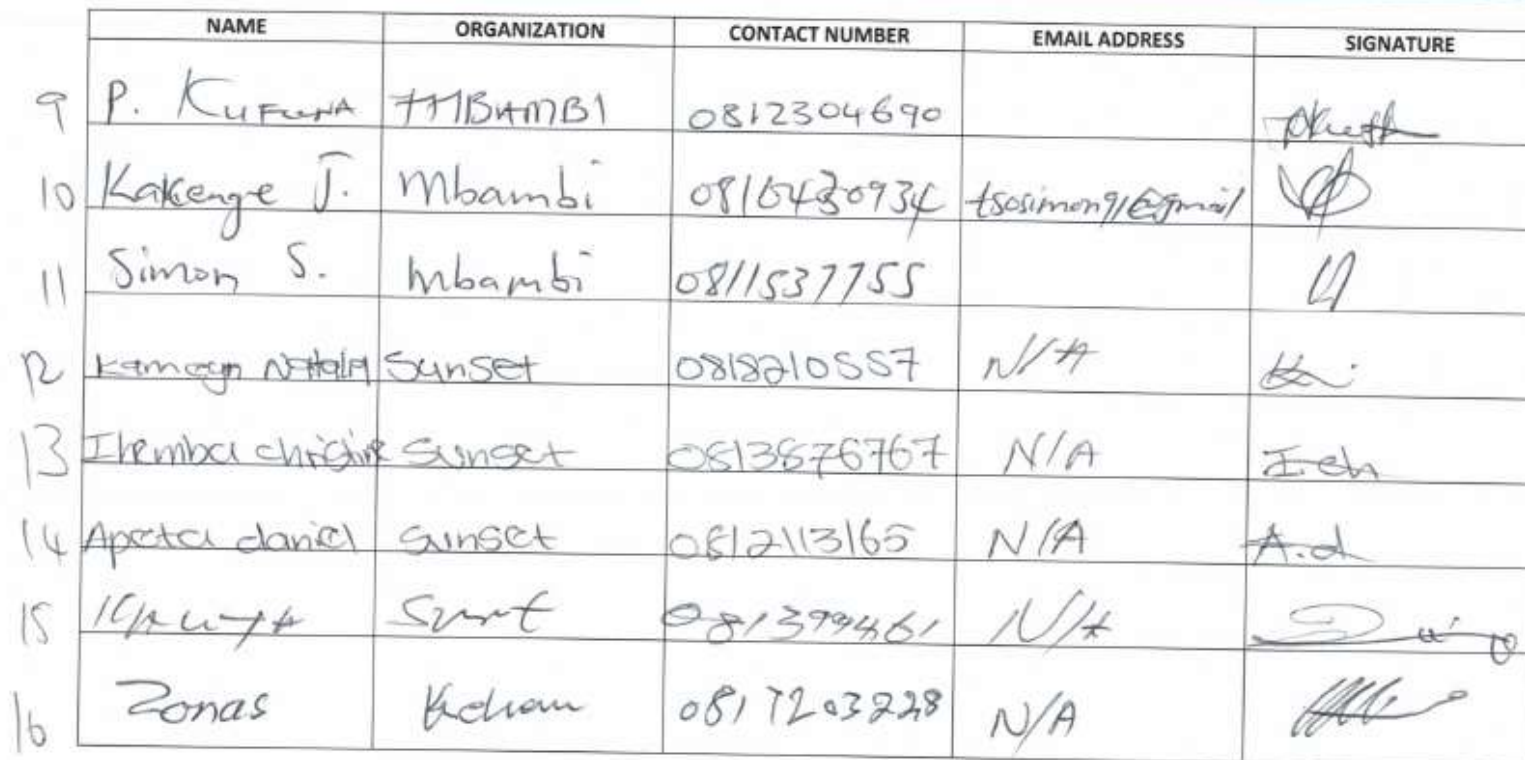 NAME ORGANIZATION CONTACT NUMBER EMAIL ADDRESS SIGNATURE
9 P. Kufuna MBAMBI 0812304690
10 Kakenge J. Mbambi 0816430934 tsosimon91@gmail
11 Simon S. Mbambi 0811537755
12 Sunset 0818210557 N/A
13 Ihemba christine Sunset 0813876767 N/A I.ch
14 Apata daniel Sunset 0812113165 N/A A.d
15 N/A
16 Zonas 0817203228 N/A